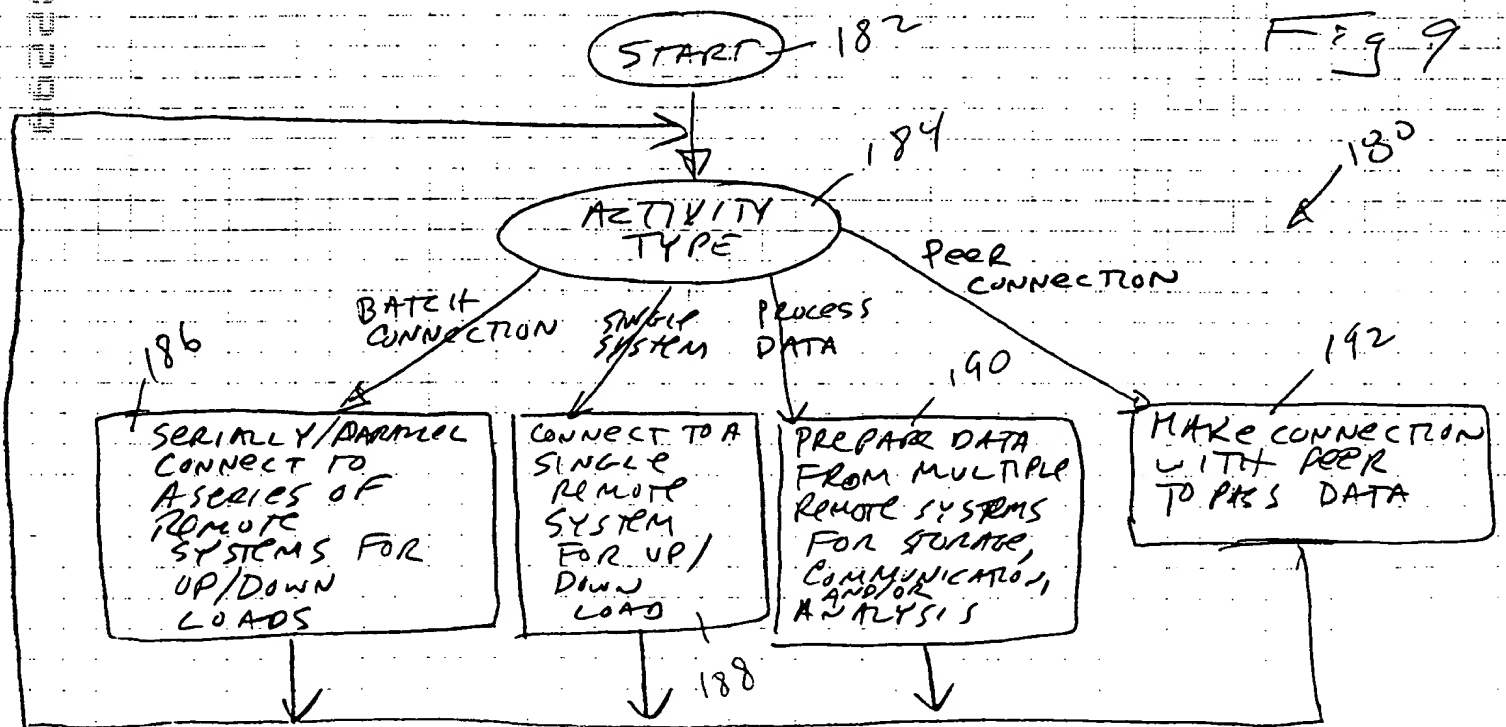 START 182
Fig 9
184
180
ACTIVITY
TYPE
PEER
CONNECTION
BATCH
CONNECTION
SINGLE
SYSTEM
PROCESS
DATA
186
190
192
SERIALLY/PARALLEL
CONNECT TO
A SERIES OF
REMOTE
SYSTEMS FOR
UP/DOWN
LOADS
CONNECT TO A
SINGLE
REMOTE
SYSTEM
FOR UP/
DOWN
LOAD
188
PREPARE DATA
FROM MULTIPLE
REMOTE SYSTEMS
FOR STORAGE,
COMMUNICATION,
AND/OR
ANALYSIS
MAKE CONNECTION
WITH PEER
TO PASS DATA